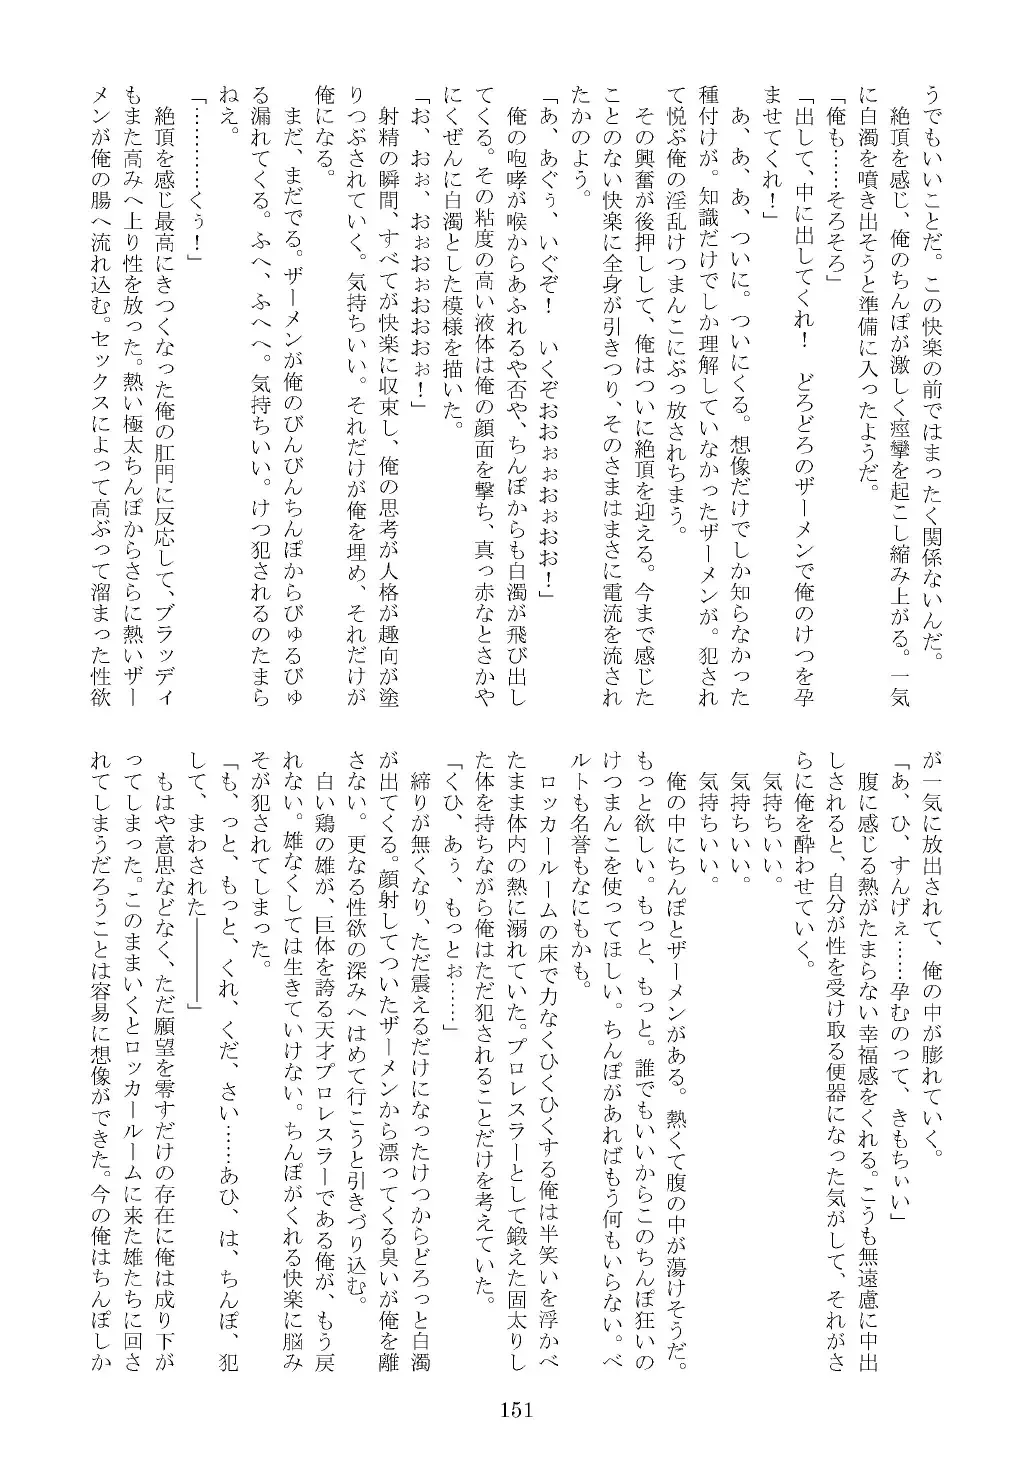 うでもいいことだ。この快楽の前ではまったく関係ないんだ。
絶頂を感じ、俺のちんぽが激しく痙攣を起こし縮み上がる。一気
に白濁を噴き出そうと準備に入ったようだ。
「俺も……そろそろ」
「出して、中に出してくれ！　どろどろのザーメンで俺のけつを孕
ませてくれ！」
あ、あ、あ、ついに。ついにくる。想像だけでしか知らなかった
種付けが。知識だけでしか理解していなかったザーメンが。犯され
て悦ぶ俺の淫乱けつまんこにぶっ放されちまう。
その興奮が後押しして、俺はついに絶頂を迎える。今まで感じた
ことのない快楽に全身が引きつり、そのさまはまさに電流を流され
たかのよう。
「あ、あぐぅ、いぐぞ！　いくぞおおぉぉおぉおお！」
俺の咆哮が喉からあふれるや否や、ちんぽからも白濁が飛び出し
てくる。その粘度の高い液体は俺の顔面を撃ち、真っ赤なとさかや
にくぜんに白濁とした模様を描いた。
「お、おぉ、おぉおぉおおおぉ！」
射精の瞬間、すべてが快楽に収束し、俺の思考が人格が趣向が塗
りつぶされていく。気持ちいい。それだけが俺を埋め、それだけが
俺になる。
まだ、まだでる。ザーメンが俺のびんびんちんぽからびゅるびゅ
る漏れてくる。ふへ、ふへへ。気持ちいい。けつ犯されるのたまら
ねえ。
「…………くぅ！」
絶頂を感じ最高にきつくなった俺の肛門に反応して、ブラッディ
もまた高みへ上り性を放った。熱い極太ちんぽからさらに熱いザー
メンが俺の腸へ流れ込む。セックスによって高ぶって溜まった性欲
が一気に放出されて、俺の中が膨れていく。
「あ、ひ、すんげぇ……孕むのって、きもちぃい」
腹に感じる熱がたまらない幸福感をくれる。こうも無遠慮に中出
しされると、自分が性を受け取る便器になった気がして、それがさ
らに俺を酔わせていく。
気持ちいい。
気持ちいい。
気持ちいい。
俺の中にちんぽとザーメンがある。熱くて腹の中が蕩けそうだ。
もっと欲しい。もっと、もっと。誰でもいいからこのちんぽ狂いの
けつまんこを使ってほしい。ちんぽがあればもう何もいらない。ベ
ルトも名誉もなにもかも。
ロッカールームの床で力なくひくひくする俺は半笑いを浮かべ
たまま体内の熱に溺れていた。プロレスラーとして鍛えた固太りし
た体を持ちながら俺はただ犯されることだけを考えていた。
「くひ、あぅ、もっとぉ……」
締りが無くなり、ただ震えるだけになったけつからどろっと白濁
が出てくる。顔射してついたザーメンから漂ってくる臭いが俺を離
さない。更なる性欲の深みへはめて行こうと引きづり込む。
白い鶏の雄が、巨体を誇る天才プロレスラーである俺が、もう戻
れない。雄なくしては生きていけない。ちんぽがくれる快楽に脳み
そが犯されてしまった。
「も、っと、もっと、くれ、くだ、さい……あひ、は、ちんぽ、犯
して、まわされた――――」
もはや意思などなく、ただ願望を零すだけの存在に俺は成り下が
ってしまった。このままいくとロッカールームに来た雄たちに回さ
れてしまうだろうことは容易に想像ができた。今の俺はちんぽしか
151